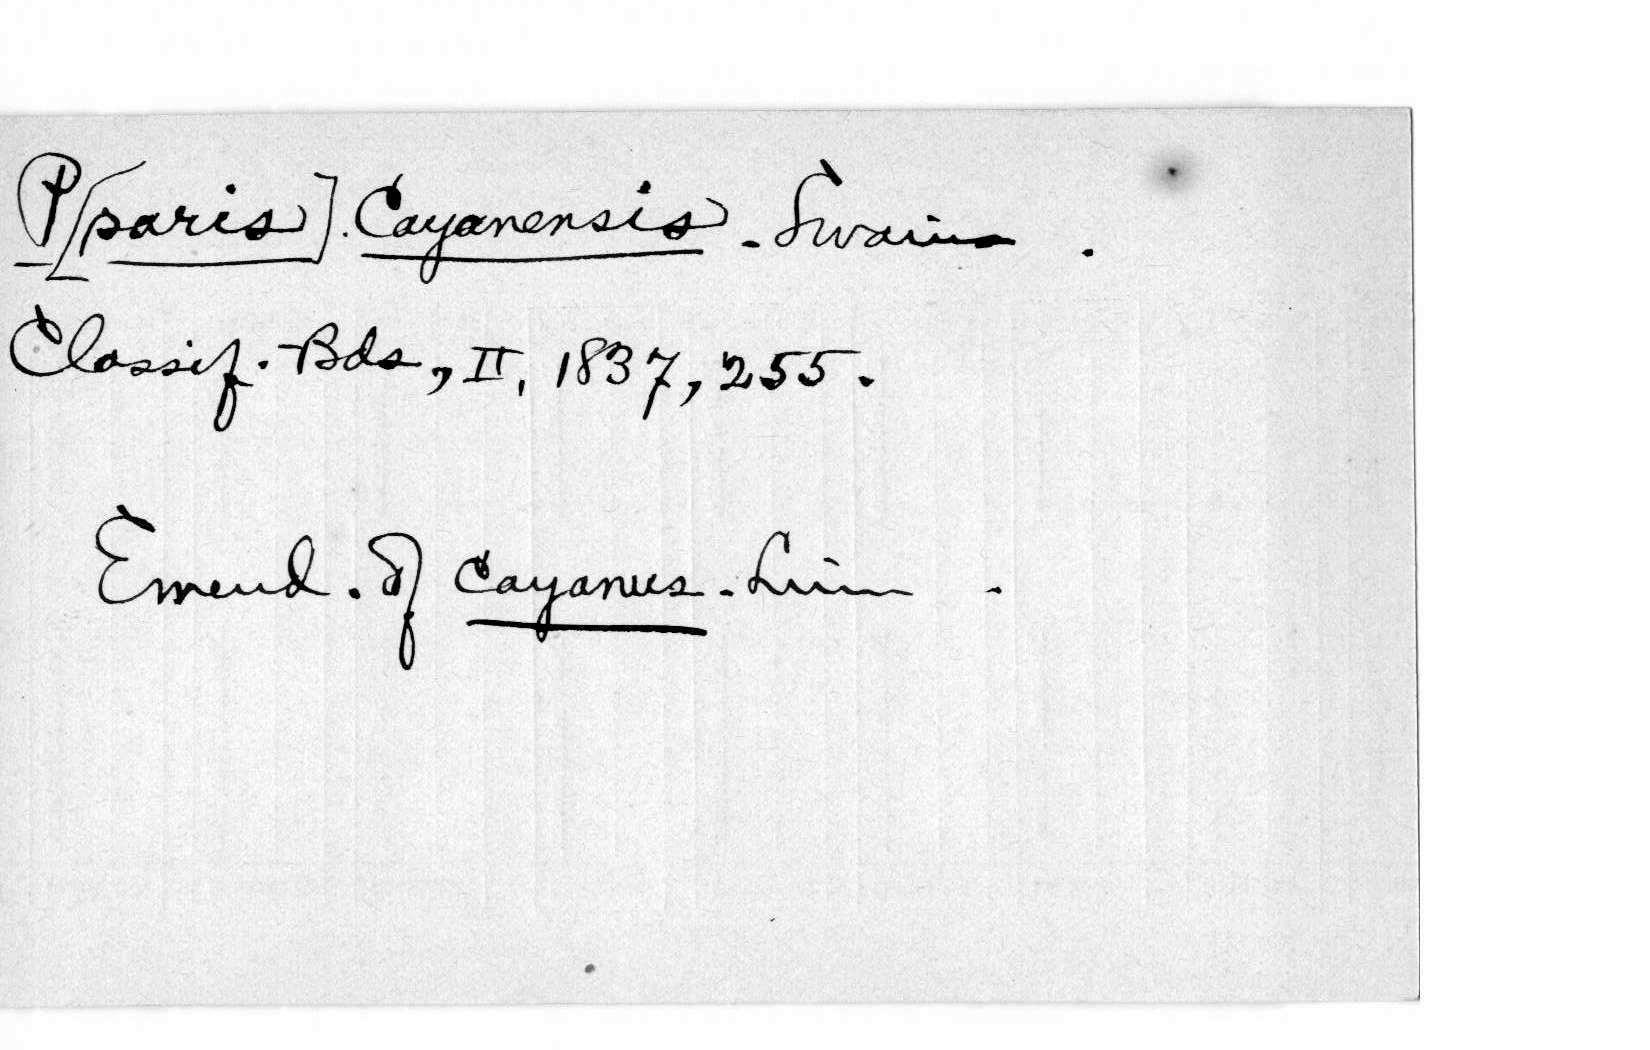 P[paris]. Cayanensis. Swains.
Classif. Bds, II, 1837, 255.
Emend. of cayanus. Linn.